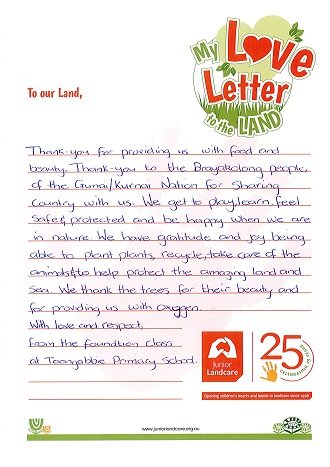 My Love
Letter
to the LAND
To our Land,
Thank-you for providing us with food and
beauty. Thank-you to the Brayakolong people,
of the Gunai/Kurnai Nation for sharing
Country with us. We get to play, learn, feel
safe & protected and be happy when we are
in nature. We have gratitude and joy being
able to plant plants, recycle, take care of the
animals & to help protect the amazing land and
sea. We thank the trees for their beauty and
for providing us with oxygen.
With love and respect,
From the foundation class
at Toongabbie Primary School.
Junior
Landcare
25
YEARS
CELEBRATING
Opening children's hearts and hands to landcare since 1998
www.juniorlandcare.org.au